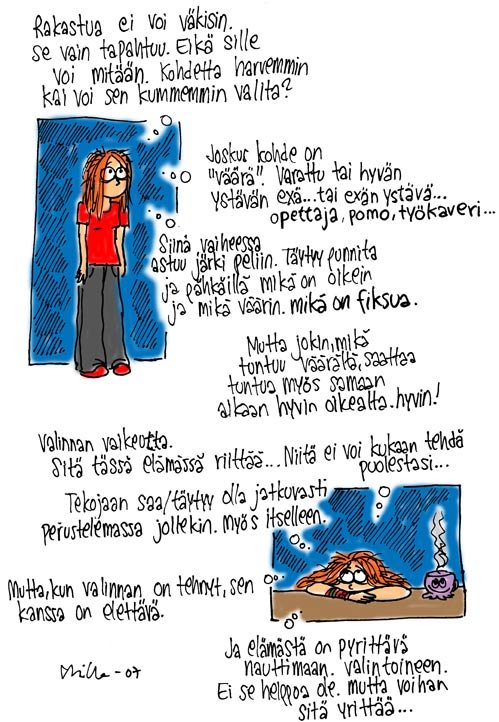 Rakastua ei voi väkisin.
se vain tapahtuu. Eikä sille
voi mitään. Kohdetta harvemmin
kai voi sen kummemmin valita?
Joskus kohde on
"väärä". Varattu tai hyvän
ystävän exä...tai exän ystävä...
opettaja, pomo, työkaveri...
Siinä vaiheessa
astuu järki peliin. Täytyy punnita
ja pähkäillä mikä on oikein
ja mikä väärin. mikä on fiksua.
Mutta jokin, mikä
tuntuu väärältä, saattaa
tuntua myös samaan
aikaan hyvin oikealta. hyvin!
Valinnan vaikeutta.
Sitä tässä elämässä riittää... Niitä ei voi kukaan tehdä
puolestasi...
Tekojaan saa/täytyy olla jatkuvasti
perustelemassa jollekin. myös itselleen.
Mutta, kun valinnan on tehnyt, sen
kanssa on elettävä.
Ja elämästä on pyrittävä
nauttimaan. valintoineen.
Ei se helppoa ole. mutta voihan
sitä yrittää...
Milla -07